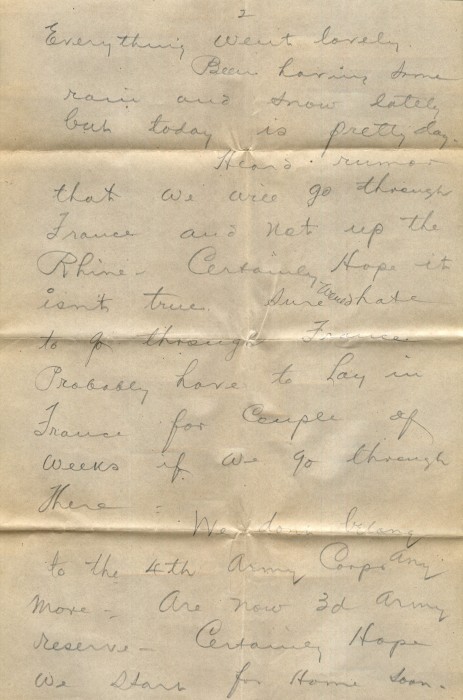 2
Everything went lovely.
Been having some
rain and snow lately
but today is pretty day.
Heard rumor
that we will go through
France and not up the
Rhine - Certainly Hope it
isn't true. Sure would hate
to go through France
Probably have to Lay in
France for Couple of
weeks if we go through
There -
We don't belong
to the 4th Army Corps any
more - Are now 3d Army
reserve - Certainly Hope
we start for Home soon -